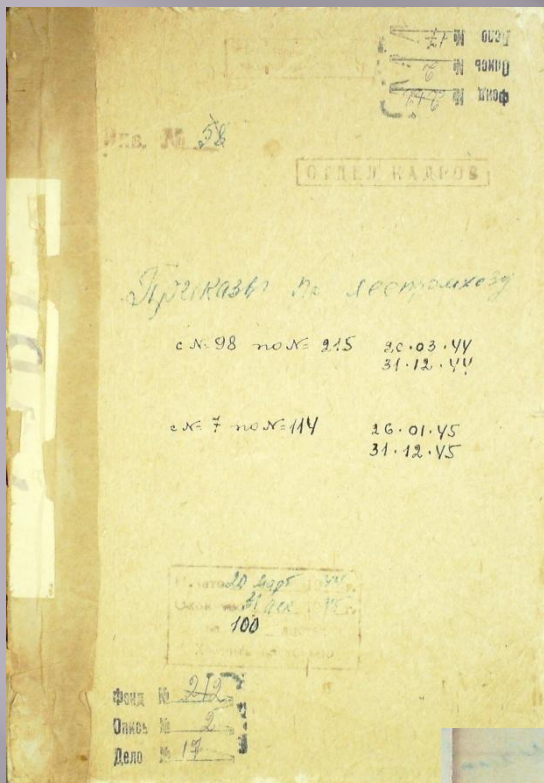 Дело № 17
Опись № 2
Фонд № 212
Инв. № 58
ОТДЕЛ КАДРОВ
Приказы по леспромхозу
с № 98 по № 215 20.03.44
31.12.44
с № 7 по № 114 26.01.45
31.12.45
20 март 44 г.
31 дек 45 г.
100
Фонд № 212
Опись № 2
Дело № 17